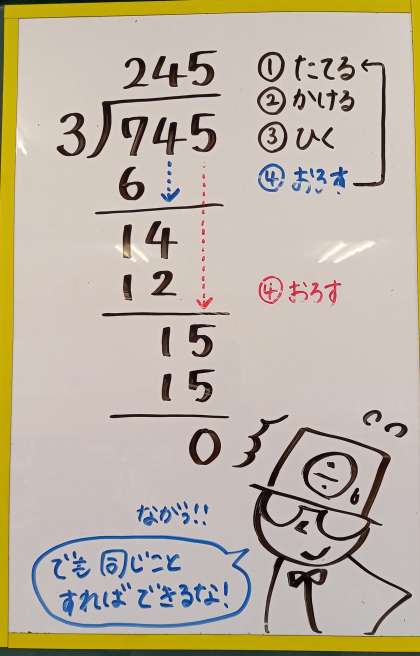 245 ①たてる
②かける
3)745 ③ひく
6 ④おろす
14
12 ④おろす
15
15
0
÷
ながっ!!
でも同じこと
すればできるな!